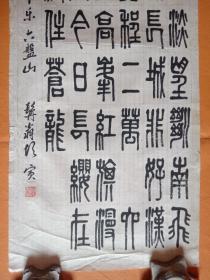 淡望斷南飛
長城非好漢
程二萬六
高峯紅旗漫
今日長纓在
住蒼龍
平乐六盤山